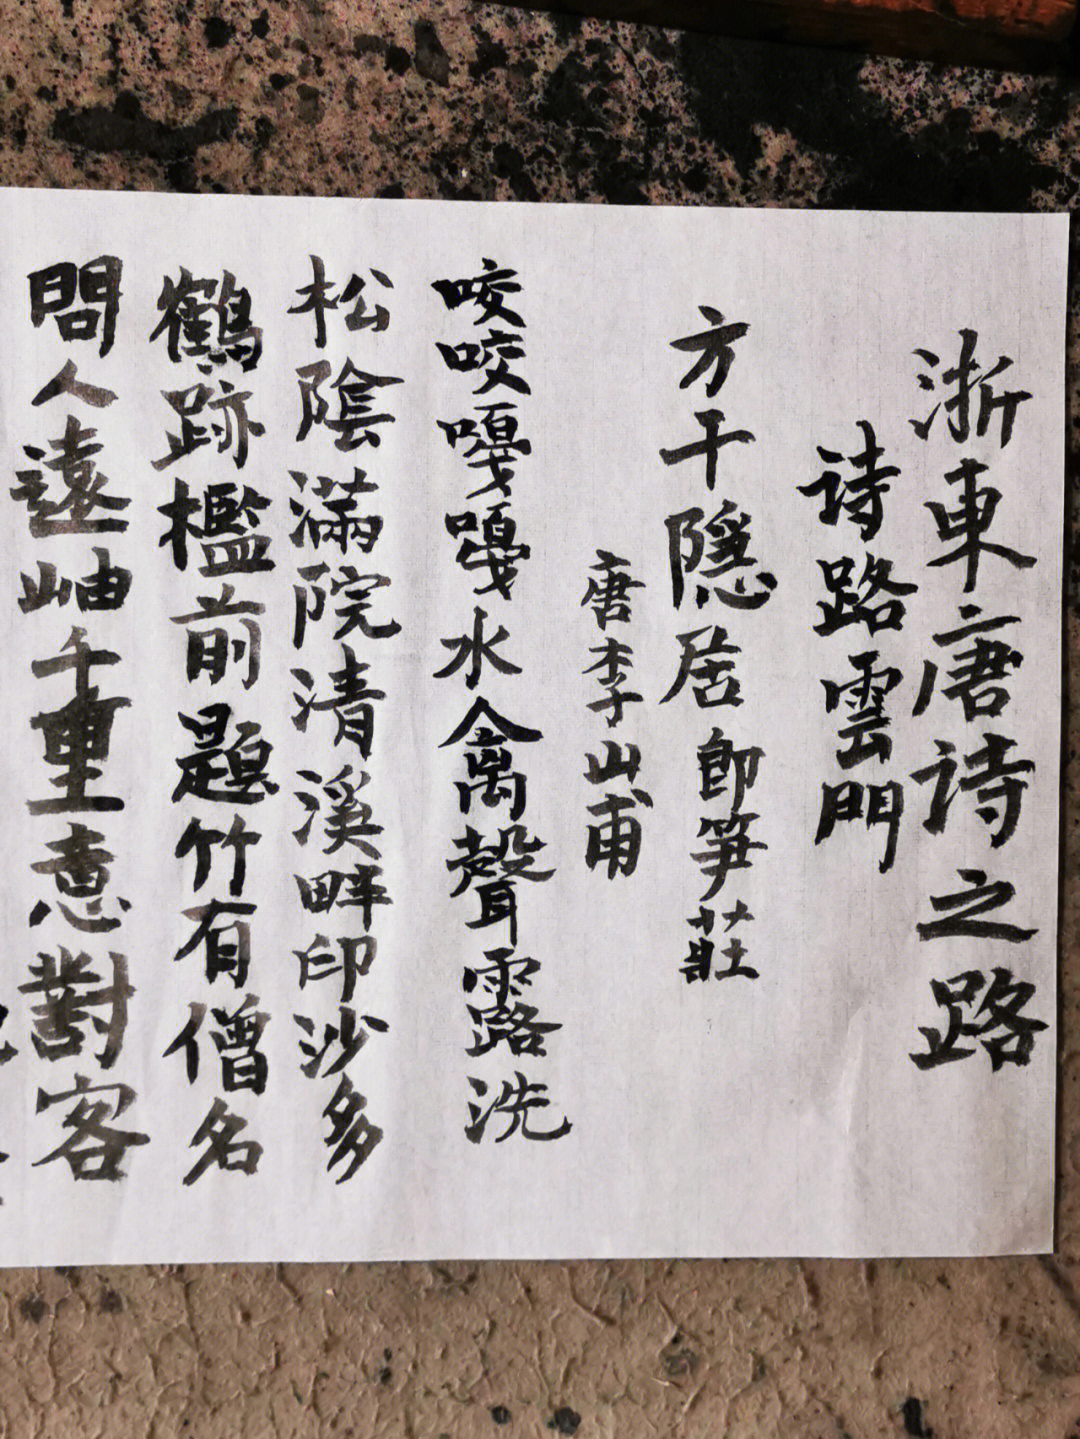 浙東唐诗之路
诗路雲門
方干隱居 即笋莊
唐李山甫
咬咬嘎嘎水禽聲露洗
松陰滿院清溪畔印沙多
鶴跡檻前題竹有僧名
問人遠岫千重意對客